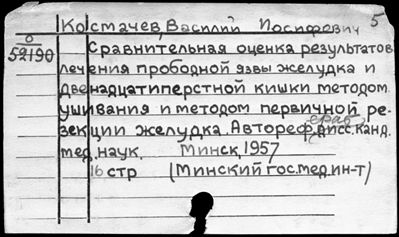 Костачев, Василий Иосифович 5
0
52190
Сравнительная оценка результатов
лечения прободной язвы желудка и
двенадцатиперстной кишки методом
ушивания и методом первичной ре-
зекции желудка. Автореферат дисс. канд.
мед. наук. Минск, 1957
16 стр (Минский гос. мед. ин-т)